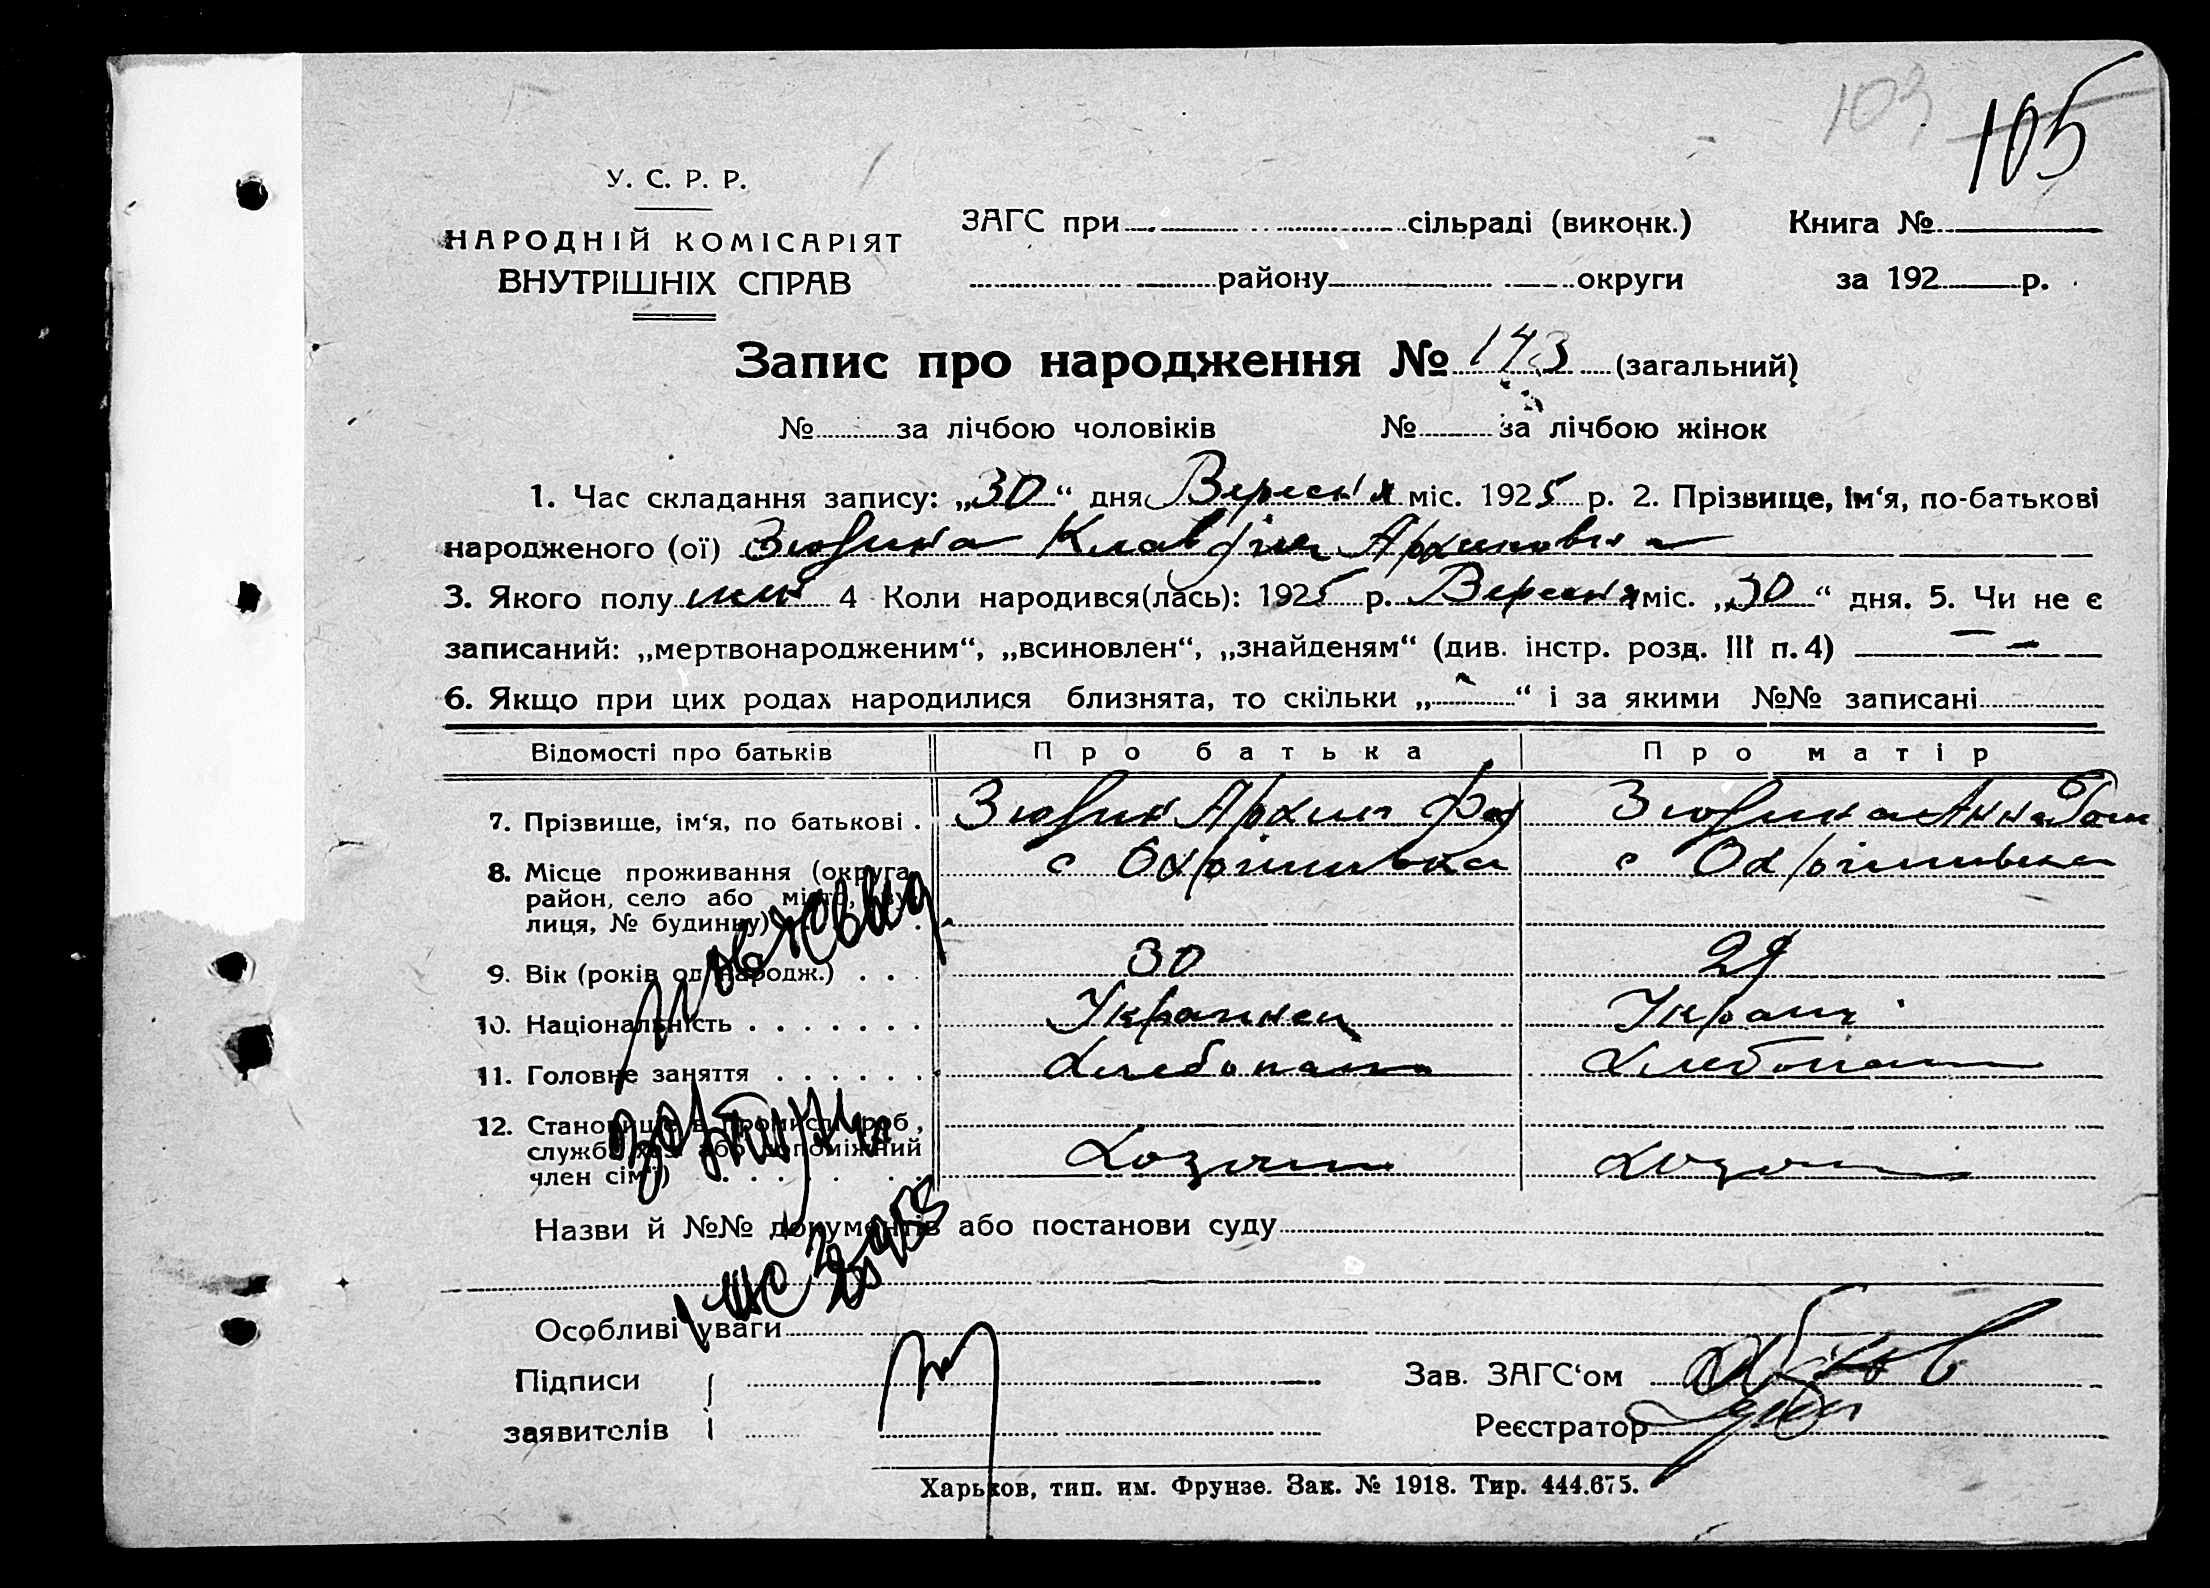 103
105
У. С. Р. Р.
НАРОДНІЙ КОМІСАРІЯТ
ВНУТРІШНІХ СПРАВ
ЗАГС при сільраді (виконк.) Книга №
району округи за 192 р.
Запис про народження № 143 (загальний)
№ за лічбою чоловіків № за лічбою жінок
1. Час складання запису: „30“ дня Вересня міс. 1925 р. 2. Прізвище, ім‘я, по-батькові
народженого (ої) Зюзина Клавдія Архиповна
3. Якого полу жін 4 Коли народився(лась): 1925 р. Вересня міс. „30“ дня. 5. Чи не є
записаний: „мертвонародженим“, „всиновлен“, „знайденям“ (див. інстр. розд. III п. 4) —
6. Якщо при цих родах народилися близнята, то скільки „ “ і за якими №№ записані
Відомості про батьків Про батька Про матір
7. Прізвище, ім‘я, по батькові . Зюзин Архип Зюзина Анна
8. Місце проживання (округа,
район, село або місто, ву-
лиця, № будинку) с Охрімівка с Охрімівка
9. Вік (років од народж.) . . . 30 29
10. Національність . . . . . . . Украинец Украин
11. Головне заняття . . . . . . Хлебопаш Хлебопаш
12. Становище в промислі (роб.,
служб., хаз. або допоміжний
член сім‘ї) Хозяин
Назви й №№ документів або постанови суду
Особливі уваги
Підписи
заявителів
Зав. ЗАГС‘ом
Реєстратор
Харьков, тип. им. Фрунзе. Зак. № 1918. Тир. 444.675.